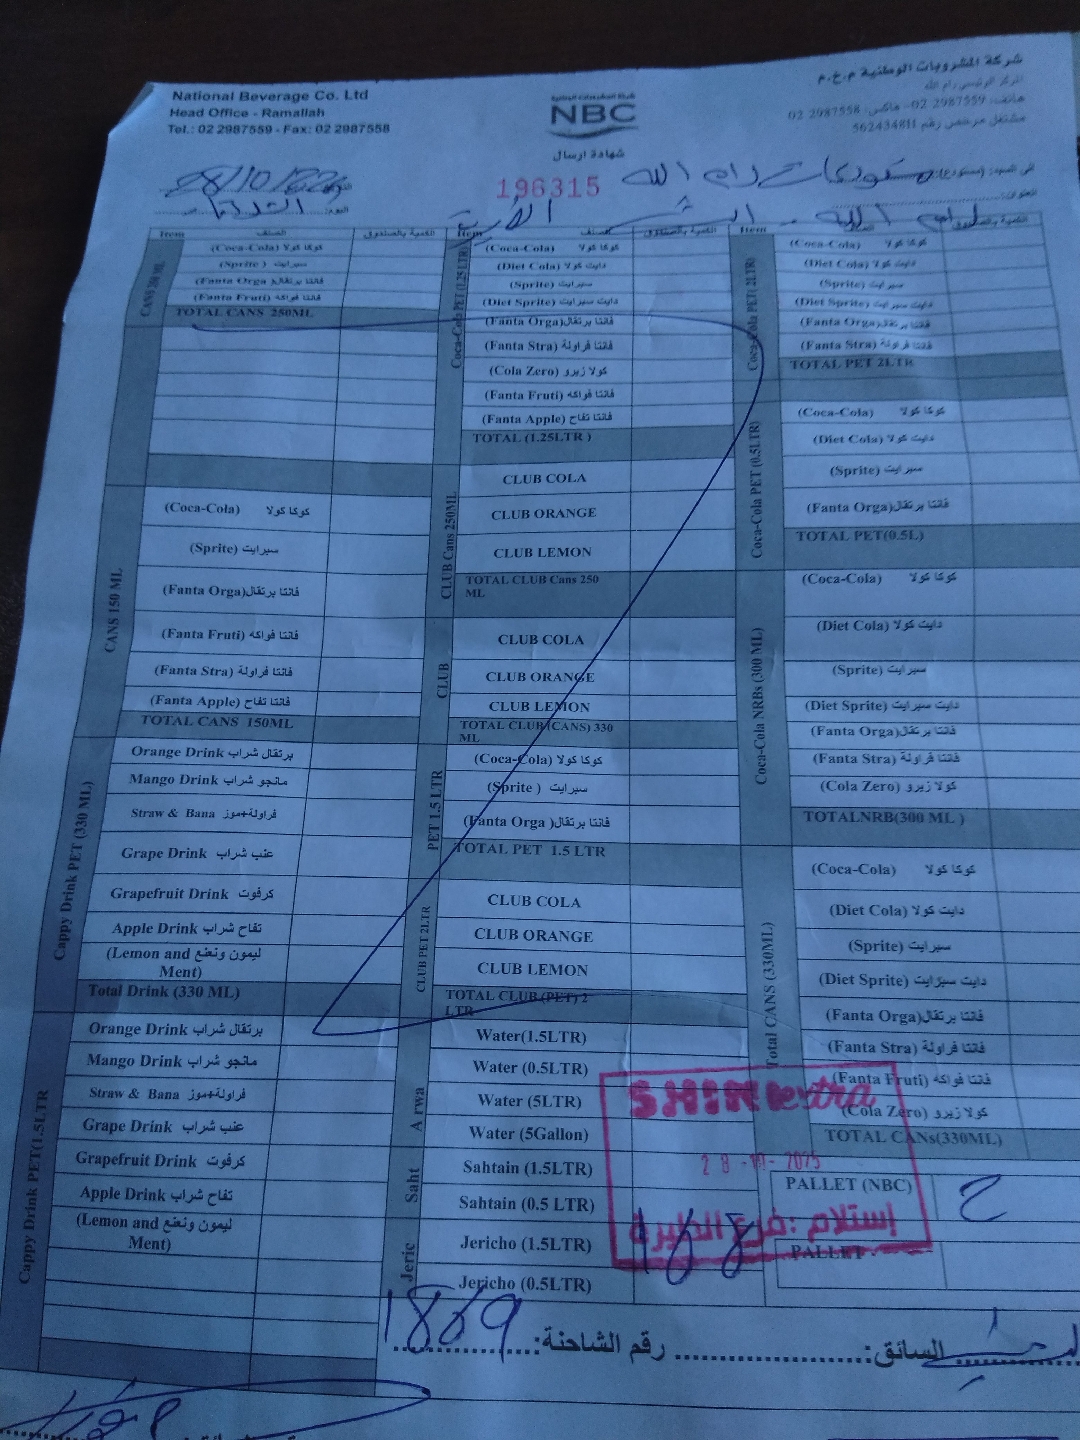 National Beverage Co. Ltd
Head Office - Ramallah
Tel.: 02 2987559 - Fax: 02 2987558
NBC
شهادة ارسال
شركة المشروبات الوطنية م.خ.م
المركز الرئيسي رام الله
هاتف: 2987559 02- فاكس: 2987558 02
مشتغل مرخص رقم 562434811
196315
رام الله
Item الصنف الكمية بالصندوق
CANS 250 ML
(Coca-Cola) كوكا كولا
(Sprite) سبرايت
(Fanta Orga) فانتا برتقال
(Fanta Fruti) فانتا فواكه
TOTAL CANS 250ML
CANS 150 ML
(Coca-Cola) كوكا كولا
(Sprite) سبرايت
(Fanta Orga) فانتا برتقال
(Fanta Fruti) فانتا فواكه
(Fanta Stra) فانتا فراولة
(Fanta Apple) فانتا تفاح
TOTAL CANS 150ML
Cappy Drink PET (330 ML)
Orange Drink برتقال شراب
Mango Drink مانجو شراب
Straw & Bana فراولة+موز
Grape Drink عنب شراب
Grapefruit Drink كرفوت
Apple Drink تفاح شراب
(Lemon and Ment) ليمون ونعنع
Total Drink (330 ML)
Cappy Drink PET(1.5LTR
Orange Drink برتقال شراب
Mango Drink مانجو شراب
Straw & Bana فراولة+موز
Grape Drink عنب شراب
Grapefruit Drink كرفوت
Apple Drink تفاح شراب
(Lemon and Ment) ليمون ونعنع
Item الصنف الكمية بالصندوق
Coca-Cola PET (1.25 LTR)
(Coca-Cola) كوكا كولا
(Diet Cola) دايت كولا
(Sprite) سبرايت
(Diet Sprite) دايت سبرايت
(Fanta Orga) فانتا برتقال
(Fanta Stra) فانتا فراولة
(Cola Zero) كولا زيرو
(Fanta Fruti) فانتا فواكه
(Fanta Apple) فانتا تفاح
TOTAL (1.25LTR )
CLUB Cans 250ML
CLUB COLA
CLUB ORANGE
CLUB LEMON
TOTAL CLUB Cans 250 ML
CLUB
CLUB COLA
CLUB ORANGE
CLUB LEMON
TOTAL CLUB (CANS) 330 ML
PET 1.5 LTR
(Coca-Cola) كوكا كولا
(Sprite ) سبرايت
(Fanta Orga ) فانتا برتقال
TOTAL PET 1.5 LTR
CLUB PET 2LTR
CLUB COLA
CLUB ORANGE
CLUB LEMON
TOTAL CLUB (PET) 2 LTR
Arwa
Water(1.5LTR)
Water (0.5LTR)
Water (5LTR)
Water (5Gallon)
Saht
Sahtain (1.5LTR)
Sahtain (0.5 LTR)
Jeric
Jericho (1.5LTR)
Jericho (0.5LTR)
Item الصنف الكمية بالصندوق
Coca-Cola PET( 2LTR)
(Coca-Cola) كوكا كولا
(Diet Cola) دايت كولا
(Sprite) سبرايت
(Diet Sprite) دايت سبرايت
(Fanta Orga) فانتا برتقال
(Fanta Stra) فانتا فراولة
TOTAL PET 2LTR
Coca-Cola PET (0.5LTR)
(Coca-Cola) كوكا كولا
(Diet Cola) دايت كولا
(Sprite) سبرايت
(Fanta Orga) فانتا برتقال
TOTAL PET(0.5L)
Coca-Cola NRBs (300 ML)
(Coca-Cola) كوكا كولا
(Diet Cola) دايت كولا
(Sprite) سبرايت
(Diet Sprite) دايت سبرايت
(Fanta Orga) فانتا برتقال
(Fanta Stra) فانتا فراولة
(Cola Zero) كولا زيرو
TOTALNRB(300 ML )
Total CANS (330ML)
(Coca-Cola) كوكا كولا
(Diet Cola) دايت كولا
(Sprite) سبرايت
(Diet Sprite) دايت سبرايت
(Fanta Orga) فانتا برتقال
(Fanta Stra) فانتا فراولة
(Fanta Fruti) فانتا فواكه
(Cola Zero) كولا زيرو
TOTAL CANs(330ML)
PALLET (NBC)
PALLET
SHINI extra
28 -10- 2025
إستلام : فرع الطيرة
168
السائق:
رقم الشاحنة: 1869